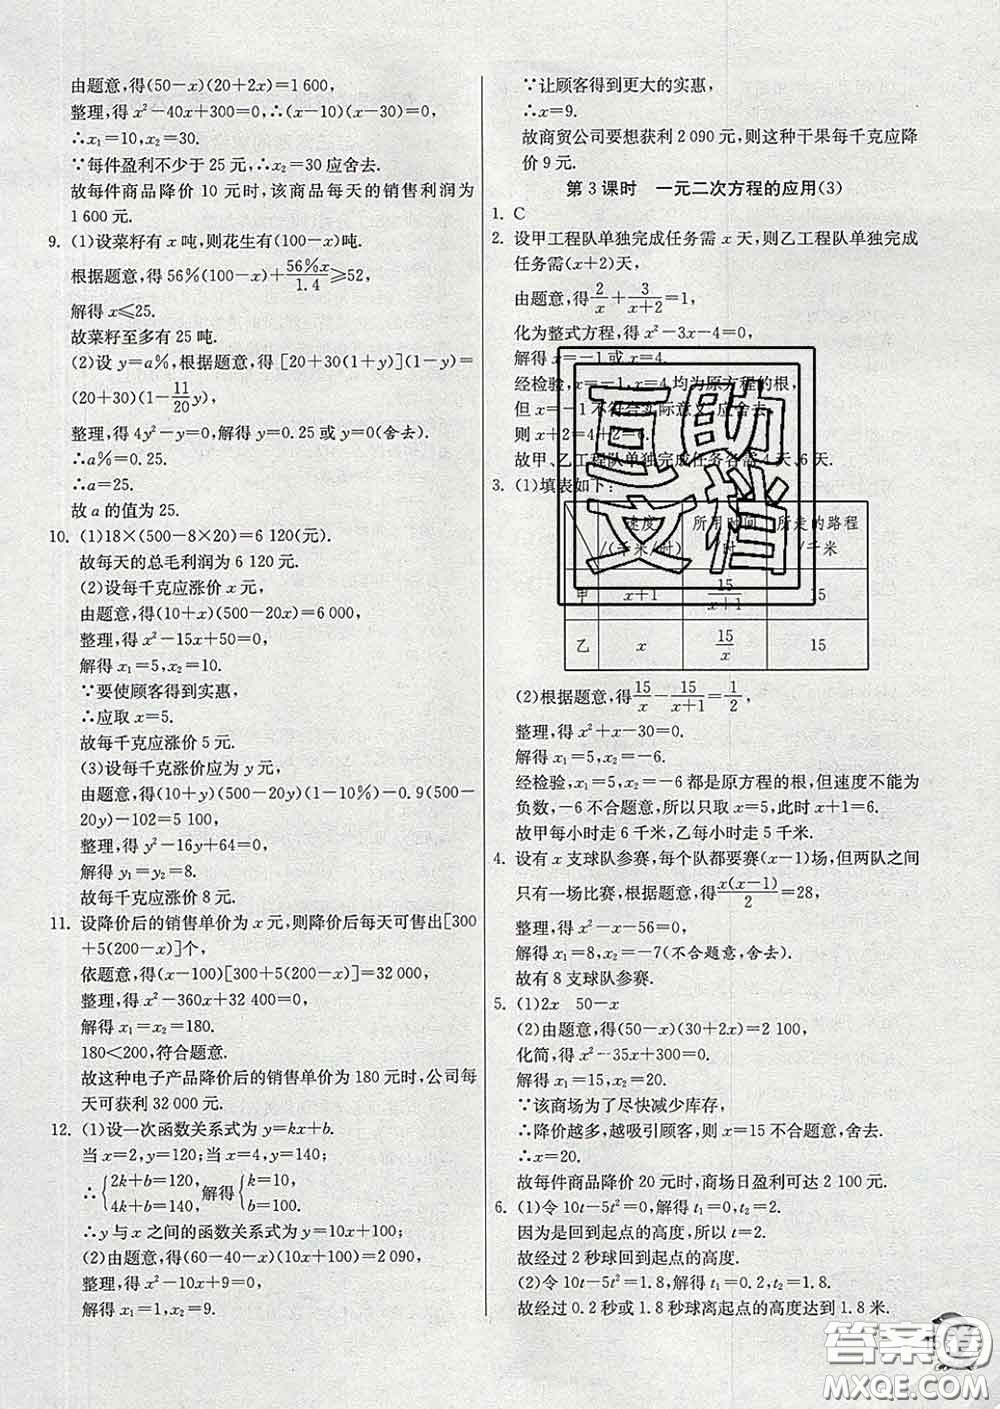 由题意,得(50-x)(20+2x)=1 600,
整理,得 x²-40x+300=0,∴(x-10)(x-30)=0,
∴x₁=10,x₂=30.
∵每件盈利不少于 25 元,∴x₂=30 应舍去.
故每件商品降价 10 元时,该商品每天的销售利润为
1 600 元.
9. (1)设菜籽有 x 吨,则花生有(100-x)吨.
根据题意,得 56%(100-x)+56%x/1.4≥52,
解得 x≤25.
故菜籽至多有 25 吨.
(2)设 y=a%,根据题意,得[20+30(1+y)](1-y)=
(20+30)(1-11/20 y),
整理,得 4y²-y=0,解得 y=0.25 或 y=0(舍去).
∴a%=0.25.
∴a=25.
故 a 的值为 25.
10. (1)18×(500-8×20)=6 120(元).
故每天的总毛利润为 6 120 元.
(2)设每千克应涨价 x 元,
由题意,得(10+x)(500-20x)=6 000,
整理,得 x²-15x+50=0,
解得 x₁=5,x₂=10.
∵要使顾客得到实惠,
∴应取 x=5.
故每千克应涨价 5 元.
(3)设每千克涨价应为 y 元,
由题意,得(10+y)(500-20y)(1-10%)-0.9(500-
20y)-102=5 100,
整理,得 y²-16y+64=0,
解得 y₁=y₂=8.
故每千克应涨价 8 元.
11. 设降价后的销售单价为 x 元,则降价后每天可售出[300
+5(200-x)]个,
依题意,得(x-100)[300+5(200-x)]=32 000,
整理,得 x²-360x+32 400=0,
解得 x₁=x₂=180.
180<200,符合题意.
故这种电子产品降价后的销售单价为 180 元时,公司每
天可获利 32 000 元.
12. (1)设一次函数关系式为 y=kx+b.
当 x=2,y=120;当 x=4,y=140;
∴{2k+b=120, 4k+b=140, 解得{k=10, b=100.
∴y 与 x 之间的函数关系式为 y=10x+100;
(2)由题意,得(60-40-x)(10x+100)=2 090,
整理,得 x²-10x+9=0,
解得 x₁=1,x₂=9.
∵让顾客得到更大的实惠,
∴x=9.
故商贸公司要想获利 2 090 元,则这种干果每千克应降
价 9 元.
第 3 课时 一元二次方程的应用(3)
1. C
2. 设甲工程队单独完成任务需 x 天,则乙工程队单独完成
任务需(x+2)天,
由题意,得 2/x+3/(x+2)=1,
化为整式方程,得 x²-3x-4=0,
解得 x=-1 或 x=4.
经检验,x=-1,x=4 均为原方程的根,
但 x=-1 不符合实际意义,应舍去,
则 x+2=4+2=6.
故甲、乙工程队单独完成任务各需 4 天、6 天.
3. (1)填表如下:
速度/(千米/时) 所用时间/时 所走的路程/千米
甲 x+1 15/(x+1) 15
乙 x 15/x 15
(2)根据题意,得 15/x-15/(x+1)=1/2,
整理,得 x²+x-30=0.
解得 x₁=5,x₂=-6.
经检验,x₁=5,x₂=-6 都是原方程的根,但速度不能为
负数,-6 不合题意,所以只取 x=5,此时 x+1=6.
故甲每小时走 6 千米,乙每小时走 5 千米.
4. 设有 x 支球队参赛,每个队都要赛(x-1)场,但两队之间
只有一场比赛,根据题意,得 x(x-1)/2=28,
整理,得 x²-x-56=0.
解得 x₁=8,x₂=-7(不合题意,舍去).
故有 8 支球队参赛.
5. (1)2x 50-x
(2)由题意,得(50-x)(30+2x)=2 100,
化简,得 x²-35x+300=0.
解得 x₁=15,x₂=20.
∵该商场为了尽快减少库存,
∴降价越多,越吸引顾客,则 x=15 不合题意,舍去.
∴x=20.
故每件商品降价 20 元时,商场日盈利可达 2 100 元.
6. (1)令 10t-5t²=0,解得 t₁=0,t₂=2.
因为是回到起点的高度,所以 t=2.
故经过 2 秒球回到起点的高度.
(2)令 10t-5t²=1.8,解得 t₁=0.2,t₂=1.8.
故经过 0.2 秒或 1.8 秒球离起点的高度达到 1.8 米.
互助
文档
答案圈
MXQE.COM